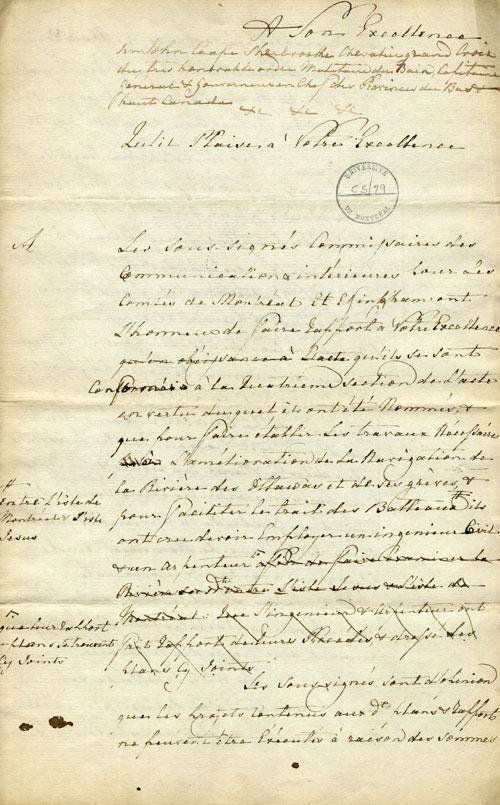 A Son Excellence
Sir John Coape Sherbrooke Chevalier grand Croix
du très honorable ordre Militaire du Bain, Capitaine
General & Gouverneur en Chef des Provinces du Bas &
haut Canada &c &c &c
Qu'il Plaise à Votre Excellence
UNIVERSITÉ
CS/79
DE MONTRÉAL
A
Les Sous-signés Commissaires des
Communications intérieures pour les
Comtés de Montréal Et Effingham ont
L'honneur de faire rapport à Votre Excellence
qu'en obéissance à l'acte qu'ils se sont
Conformés à la Quatrieme section de l'acte
en vertu duquel ils ont été Nommés, &
que pour faire établir les travaux Nécessaires
L'amélioration de la Navigation de
la Rivière des Outawas et de ses grèves, &
pour faciliter le trait des Batteaux # ils
ont cru devoir Employer un ingenieur Civil
& un arpenteur afin de faire Examiner la
Rivière entre L'isle Jesus & L'isle de
Montréal. Que l'ingenieur & arpenteur ont
fait rapport de leurs Procédés, & dressé des
plans Cy Joints.
#
entre l'isle de
Montreal & l'isle
Jesus
plans se trouvent
Cy Joints
Les Sous-signés sont d'opinion
que les projets Contenus aux dts plans & rapport
ne peuvent être Executés à raison des sommes